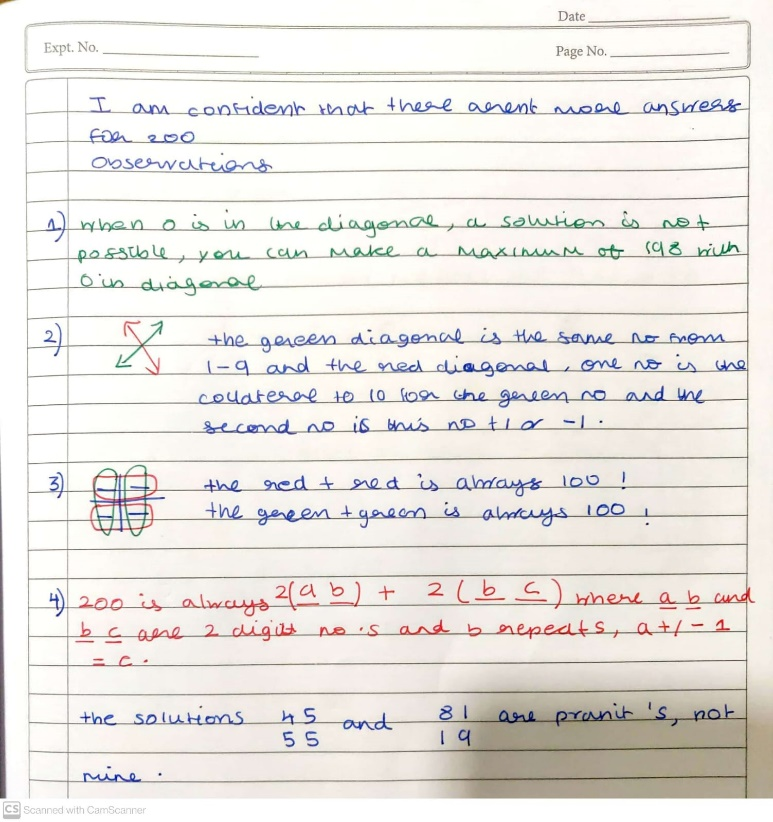 Date
Expt. No.
Page No.
I am confident that there arent more answers
for 200
Observations
1) when 0 is in the diagonal, a solution is not
possible, you can make a maximum of 198 with
0 in diagonal
2) the green diagonal is the same no from
1-9 and the red diagonal, one no is the
collateral to 10 for the green no and the
second no is this no +1 or -1.
3) the red + red is always 100 !
the green + green is always 100 !
4) 200 is always 2(a b) + 2 (b c) where a b and
b c are 2 digit no.s and b repeats, a +/- 1
= c.
the solutions 45 and 81 are pranit 's, not
55 19
mine.
CS Scanned with CamScanner